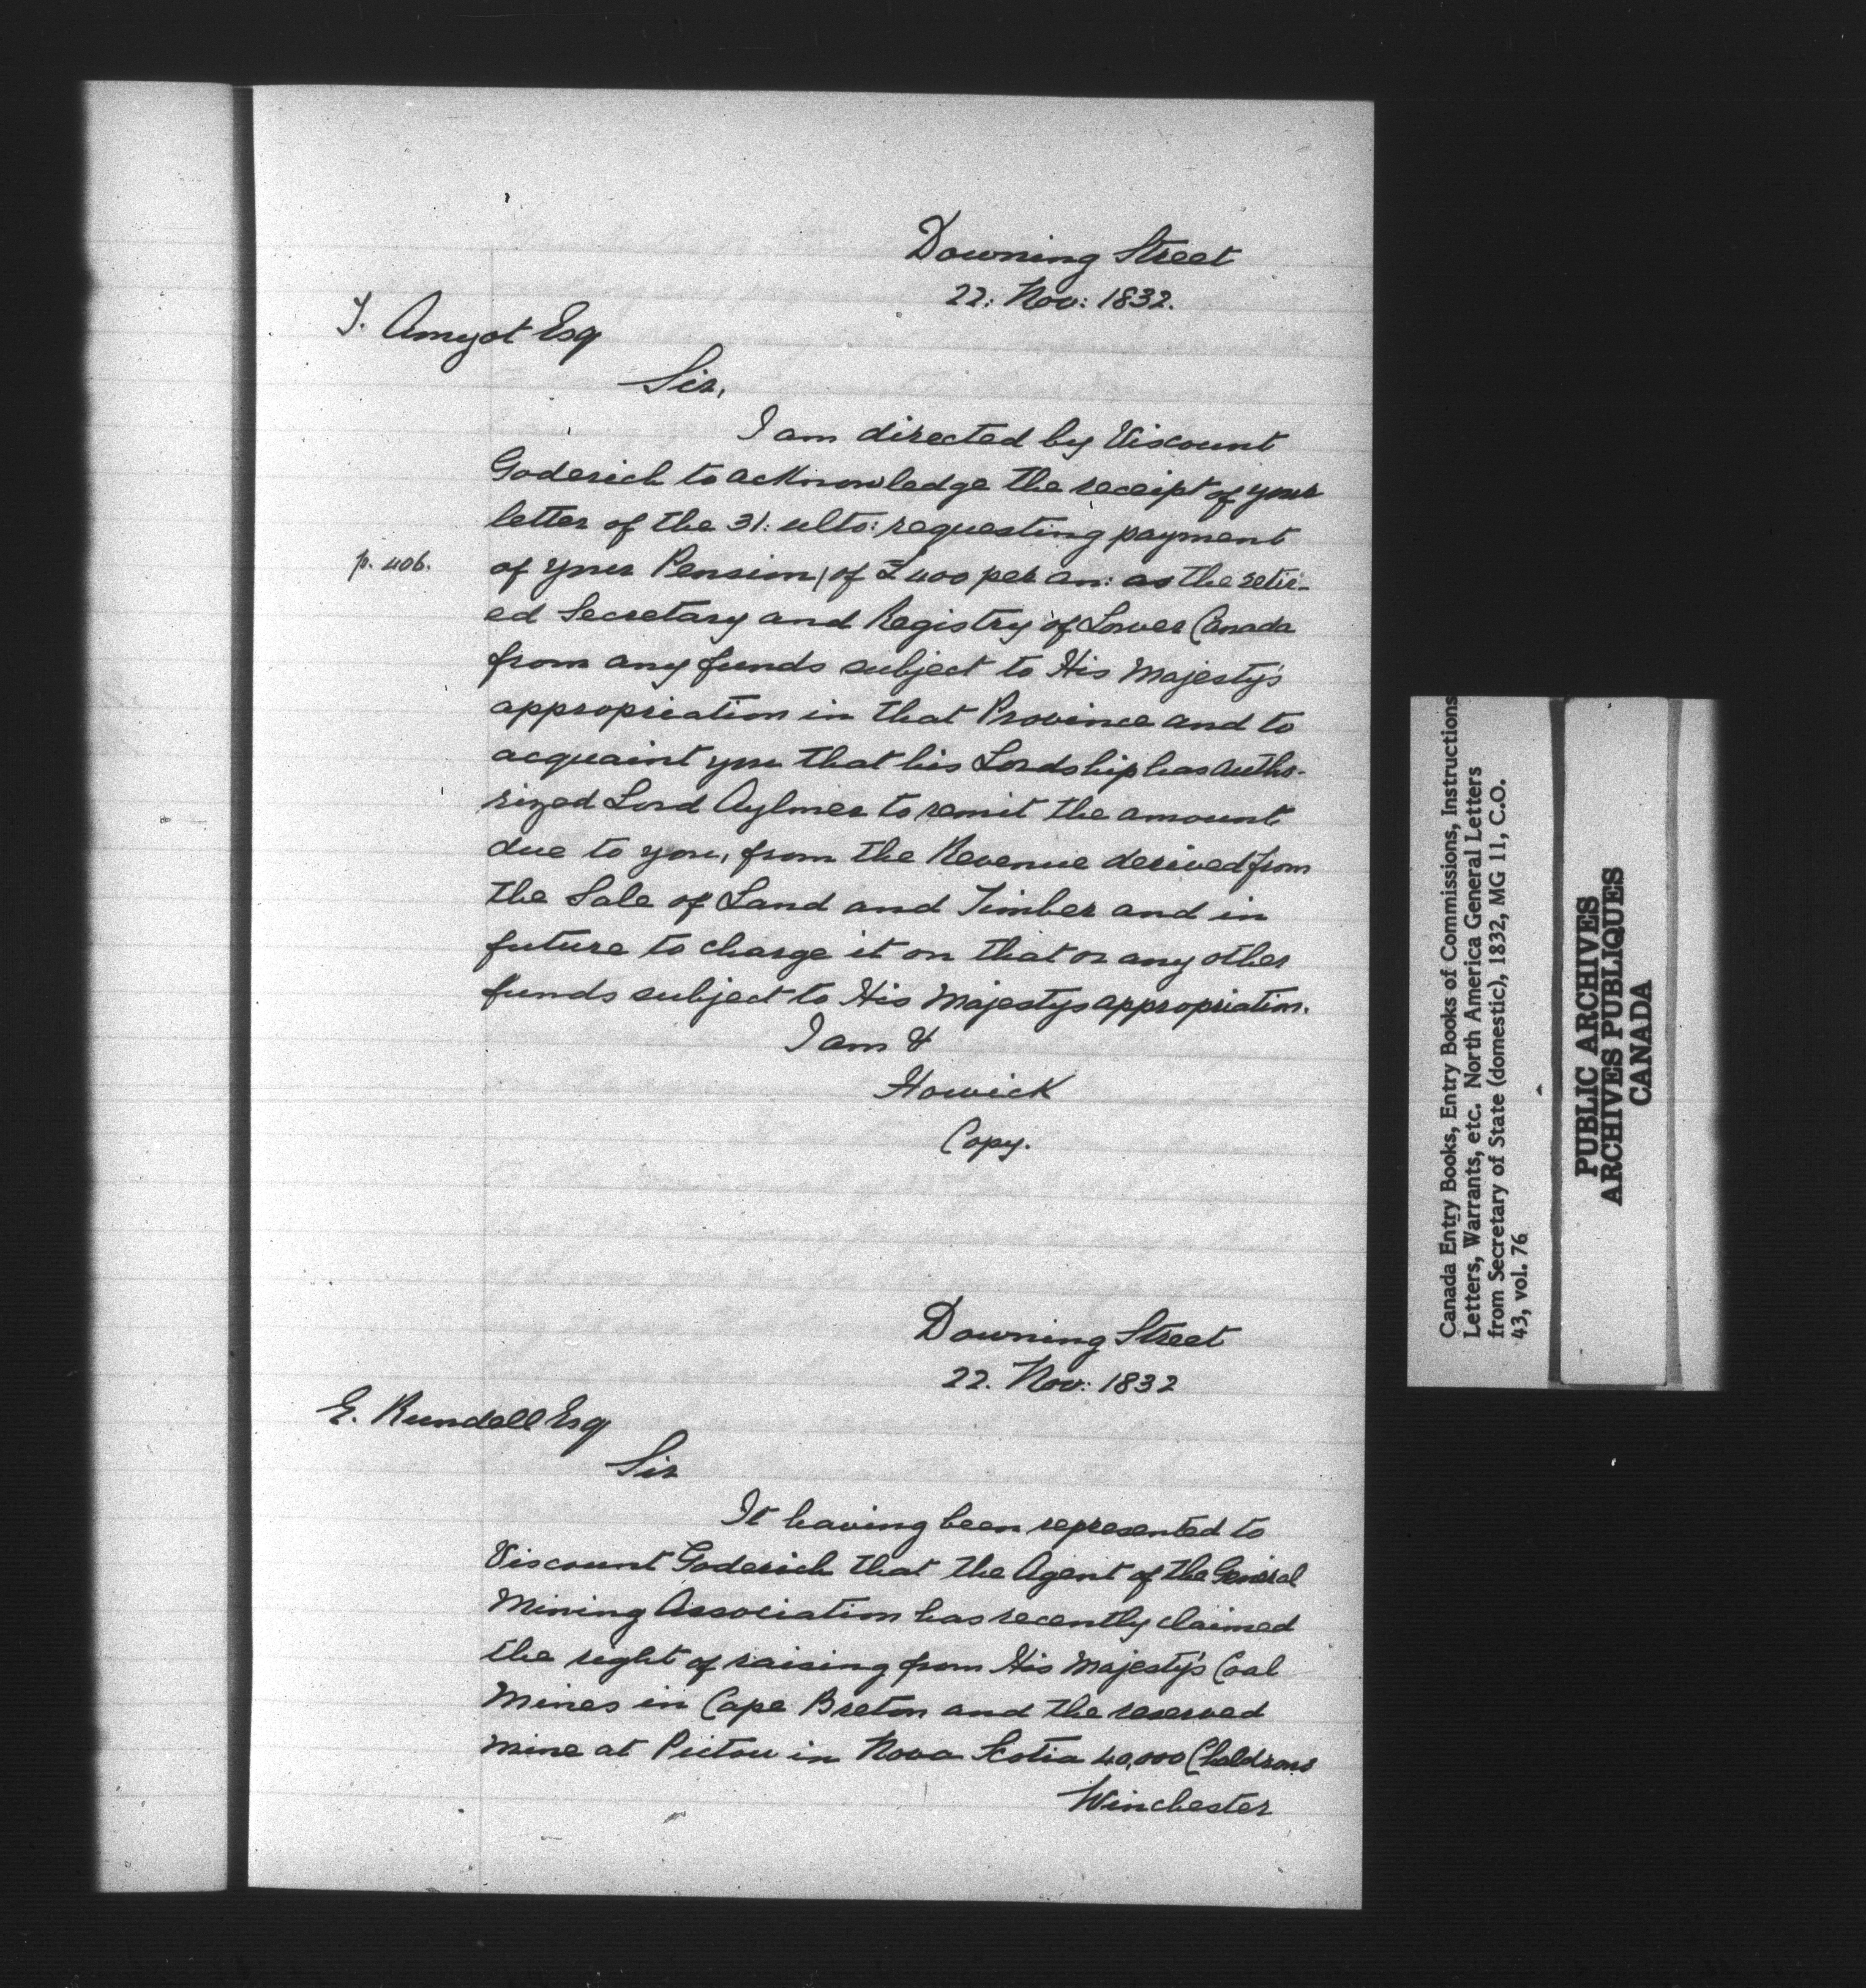 Downing Street
22: Nov: 1832.
T. Amyot Esq
Sir,
I am directed by Viscount
Goderich to acknowledge the receipt of your
letter of the 31: ulto: requesting payment
p. 406.
of your Pension, of £400 per an: as the retir-
ed Secretary and Registry of Lower Canada
from any funds subject to His Majesty's
appropriation in that Province and to
acquaint you that his Lordship has autho-
rized Lord Aylmer to remit the amount
due to you, from the Revenue derived from
the Sale of Land and Timber and in
future to charge it on that or any other
funds subject to His Majestys appropriation.
I am &
Howick
Copy.
Downing Street
22. Nov: 1832
E. Rundell Esq
Sir
It having been represented to
Viscount Goderich that the Agent of the General
Mining Association has recently claimed
the right of raising from His Majesty's Coal
Mines in Cape Breton and the reserved
mine at Pictou in Nova Scotia 40,000 Chaldrons
Winchester
Canada Entry Books, Entry Books of Commissions, Instructions
Letters, Warrants, etc. North America General Letters
from Secretary of State (domestic), 1832, MG 11, C.O.
43, vol. 76
PUBLIC ARCHIVES
ARCHIVES PUBLIQUES
CANADA